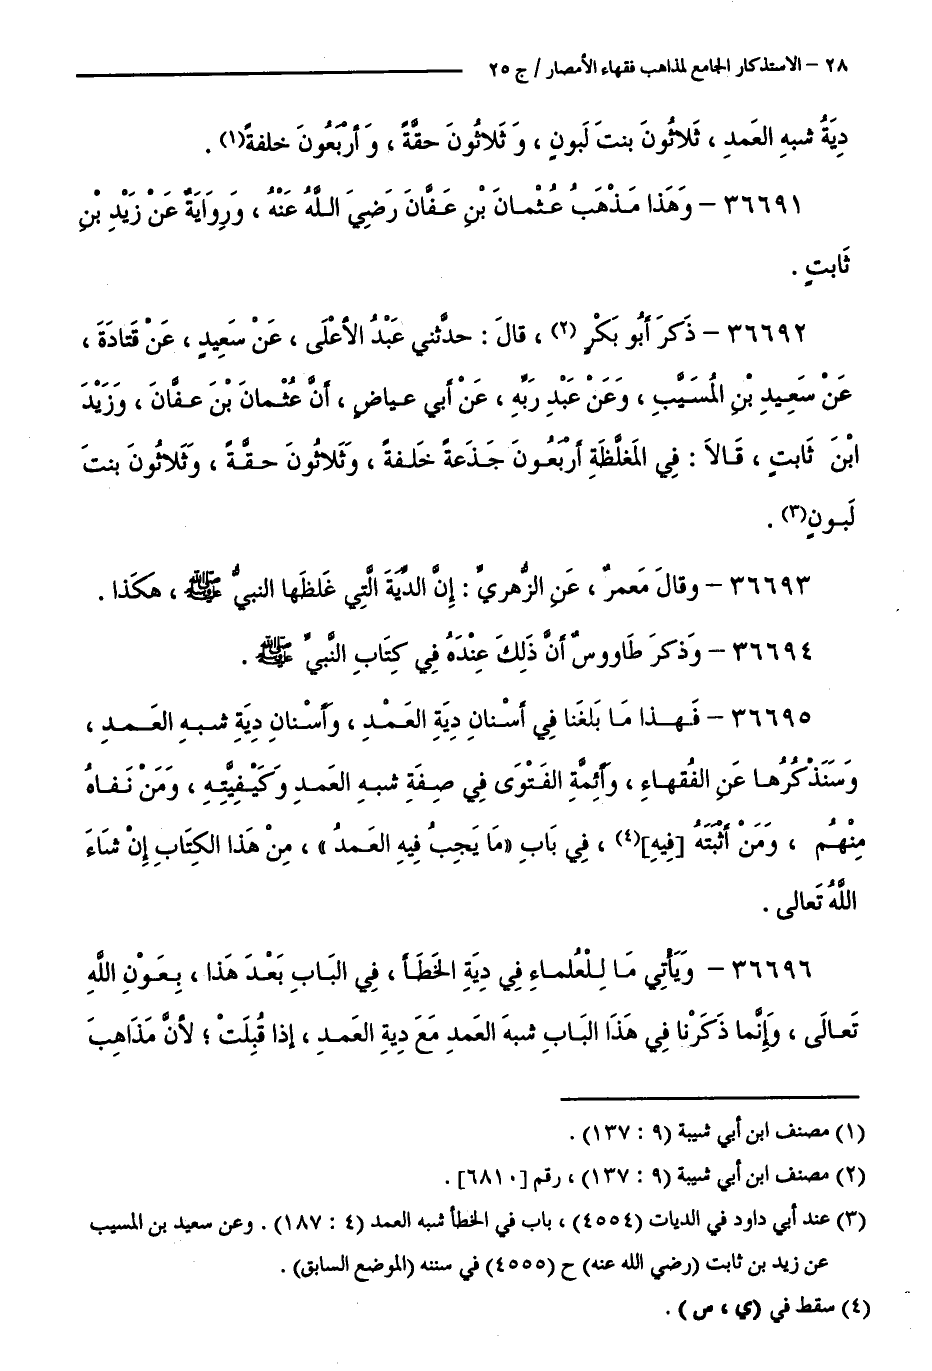 ٢٨ – الاستذكار الجامع لمذاهب فقهاء الأمصار / ج ٢٥
دِيَةُ شبهِ العَمدِ ، ثَلاثُونَ بنتَ لَبونٍ ، وَ ثَلاثُونَ حقَّةً ، وَ أَرْبَعُونَ خلفةً(١) .
٣٦٦٩١ – وَهَذَا مَذْهَبُ عُثْمَانَ بْنِ عَفَّانَ رَضِيَ اللَّهُ عَنْهُ ، وَرِوَايَةٌ عَنْ زَيْدِ بْنِ
ثَابتٍ .
٣٦٦٩٢ – ذَكرَ أَبُو بَكْرٍ (٢) ، قالَ : حدثَّني عَبْدُ الأعْلَى ، عَنْ سَعِيدٍ ، عَنْ قَتادَةَ ،
عَنْ سَعِيدِ بْنِ المُسَيَّبِ ، وَعَنْ عَبْدِ رَبِّهِ ، عَنْ أَبي عياضٍ ، أنَّ عُثْمانَ بْنَ عفَّانَ ، وزَيْدَ
ابْنَ ثَابتٍ ، قَالاَ : فِي المَغلَّظَةِ أَرْبَعُونَ جَذَعةً خَلفةً ، وثَلاثُونَ حقَّةً ، وثَلاثُونَ بنتَ
لَبونٍ(٣) .
٣٦٦٩٣ – وقالَ مَعمرٌ ، عَنِ الزُّهريِّ : إِنَّ الدِّيَةَ الَّتِي غَلظَها النبيُّ ﷺ ، هكَذا .
٣٦٦٩٤ – وَذكرَ طَاووسٌ أنَّ ذَلِكَ عِنْدَهُ فِي كِتَابِ النَّبيِّ ﷺ .
٣٦٦٩٥ – فَهذا مَا بَلغَنا فِي أسْنانِ دِيَةِ العَمْدِ ، وأسْنانِ دِيَةِ شبهِ العَمدِ ،
وَسَنَذْكُرُها عَنِ الفُقهاءِ ، وَأئِمَّةِ الفَتْوَى فِي صِفَةِ شبهِ العَمدِ وَكَيْفِيَّتِهِ ، وَمَنْ نَفاهُ
مِنْهُم ، ومَنْ أثْبَتَهُ [فِيهِ](٤) ، فِي بَابِ «مَا يَجبُ فِيهِ العَمدُ» ، مِنْ هَذا الكِتَابِ إِنْ شاءَ
اللَّهُ تَعالى .
٣٦٦٩٦ – وَيَأتِي مَا لِلْعُلماءِ فِي دِيَةِ الخَطَأ ، فِي البَابِ بَعْدَ هَذا ، بِعَوْنِ اللَّهِ
تَعَالَى ، وَإِنَّما ذَكَرْنا فِي هَذَا البَابِ شبهَ العَمدِ مَعَ دِيةِ العَمدِ ، إذا قُبِلَتْ ؛ لأنَّ مَذَاهِبَ
(١) مصنف ابن أبي شيبة (٩ : ١٣٧) .
(٢) مصنف ابن أبي شيبة (٩ : ١٣٧) ، رقم [٦٨١٠] .
(٣) عند أبي داود في الديات (٤٥٥٤) ، باب في الخطأ شبه العمد (٤ : ١٨٧) . وعن سعيد بن المسيب
عن زيد بن ثابت (رضي الله عنه) ح (٤٥٥٥) في سننه (الموضع السابق) .
(٤) سقط في (ي ، ص) .